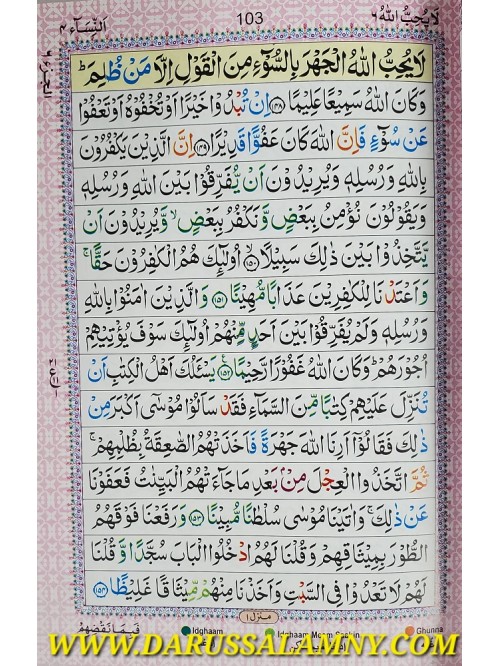 اَلنِّسَآء ٤
103
لَا يُحِبُّ اللّٰهُ ٦
لَا يُحِبُّ اللّٰهُ الْجَهْرَ بِالسُّوْٓءِ مِنَ الْقَوْلِ اِلَّا مَنْ ظُلِمَ ؕ
وَ كَانَ اللّٰهُ سَمِيْعًا عَلِيْمًا ﴿١٤٨﴾ اِنْ تُبْدُوْا خَيْرًا اَوْ تُخْفُوْهُ اَوْ تَعْفُوْا
عَنْ سُوْٓءٍ فَاِنَّ اللّٰهَ كَانَ عَفُوًّا قَدِيْرًا ﴿١٤٩﴾ اِنَّ الَّذِيْنَ يَكْفُرُوْنَ
بِاللّٰهِ وَ رُسُلِهٖ وَ يُرِيْدُوْنَ اَنْ يُّفَرِّقُوْا بَيْنَ اللّٰهِ وَ رُسُلِهٖ
وَ يَقُوْلُوْنَ نُؤْمِنُ بِبَعْضٍ وَّ نَكْفُرُ بِبَعْضٍ ۙ وَّ يُرِيْدُوْنَ اَنْ
يَّتَّخِذُوْا بَيْنَ ذٰلِكَ سَبِيْلًا ﴿١٥٠﴾ اُولٰٓئِكَ هُمُ الْكٰفِرُوْنَ حَقًّا ۚ
وَ اَعْتَدْنَا لِلْكٰفِرِيْنَ عَذَابًا مُّهِيْنًا ﴿١٥١﴾ وَ الَّذِيْنَ اٰمَنُوْا بِاللّٰهِ
وَ رُسُلِهٖ وَ لَمْ يُفَرِّقُوْا بَيْنَ اَحَدٍ مِّنْهُمْ اُولٰٓئِكَ سَوْفَ يُؤْتِيْهِمْ
اُجُوْرَهُمْ ؕ وَ كَانَ اللّٰهُ غَفُوْرًا رَّحِيْمًا ﴿١٥٢﴾ يَسْـَٔلُكَ اَهْلُ الْكِتٰبِ اَنْ
تُنَزِّلَ عَلَيْهِمْ كِتٰبًا مِّنَ السَّمَآءِ فَقَدْ سَاَلُوْا مُوْسٰۤى اَكْبَرَ مِنْ
ذٰلِكَ فَقَالُوْۤا اَرِنَا اللّٰهَ جَهْرَةً فَاَخَذَتْهُمُ الصّٰعِقَةُ بِظُلْمِهِمْ ۚ
ثُمَّ اتَّخَذُوا الْعِجْلَ مِنْۢ بَعْدِ مَا جَآءَتْهُمُ الْبَيِّنٰتُ فَعَفَوْنَا
عَنْ ذٰلِكَ ۚ وَ اٰتَيْنَا مُوْسٰى سُلْطٰنًا مُّبِيْنًا ﴿١٥٣﴾ وَ رَفَعْنَا فَوْقَهُمُ
الطُّوْرَ بِمِيْثَاقِهِمْ وَ قُلْنَا لَهُمُ ادْخُلُوا الْبَابَ سُجَّدًا وَّ قُلْنَا
لَهُمْ لَا تَعْدُوْا فِى السَّبْتِ وَ اَخَذْنَا مِنْهُمْ مِّيْثَاقًا غَلِيْظًا ﴿١٥٤﴾
منزل ١
فَبِمَا نَقْضِهِمْ
Idghaam
Idghaam Meem Saakin
Ghunna
WWW.DARUSSALAMNY.COM